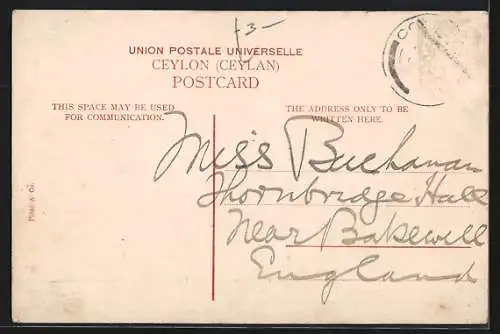 £3-
UNION POSTALE UNIVERSELLE
CEYLON (CEYLAN)
POSTCARD
THIS SPACE MAY BE USED
FOR COMMUNICATION.
THE ADDRESS ONLY TO BE
WRITTEN HERE.
Miss Buchanan
Thornbridge Hall
Near Bakewell
England
Plâté & Co.
CO